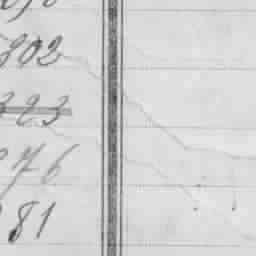 802
323
76
81